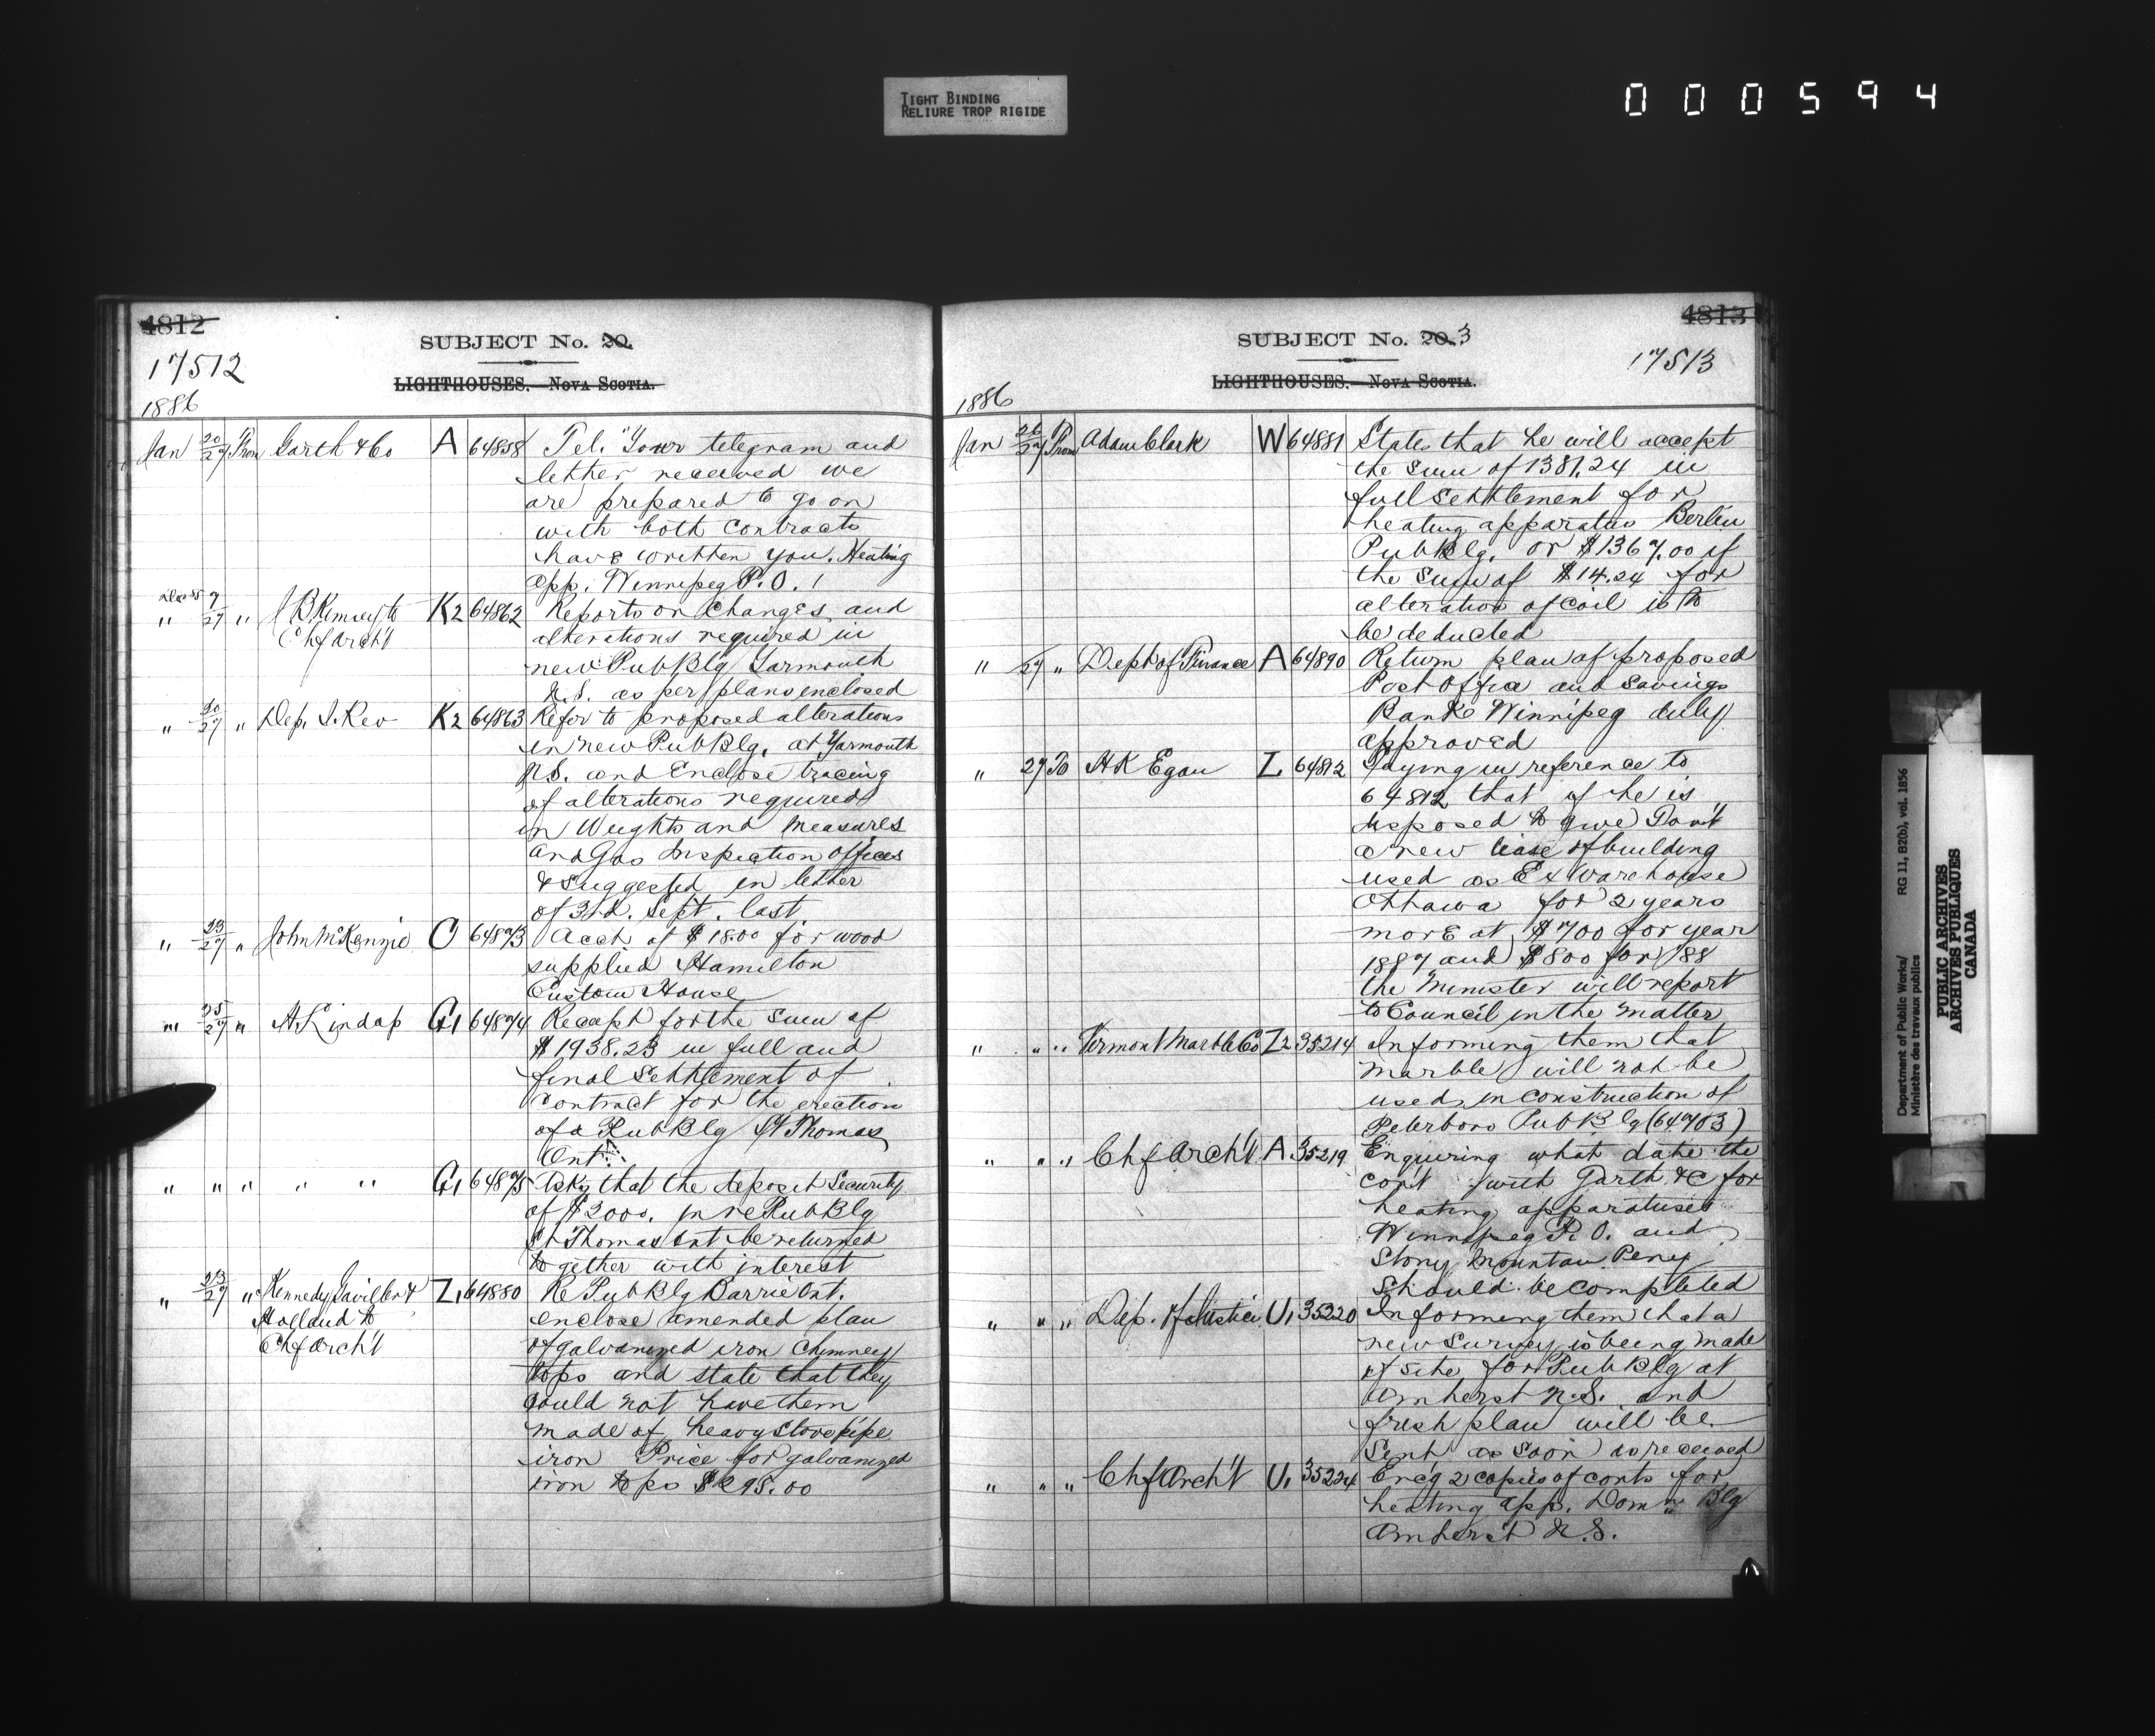 TIGHT BINDING
RELIURE TROP RIGIDE
000594
4812
SUBJECT No. 20.
17512
LIGHTHOUSES. – NOVA SCOTIA.
1886
Jan 20/27 From Garth & Co A 64858 Tel. "Your telegram and
letter received we
are prepared to go on
with both contracts
have written you. Heating
App. Winnipeg P.O.
Dec 85 9
" 27 " to K2 64862 Reports on changes and
Chf Arch't alterations required in
new Pub Blg Yarmouth
N.S. as per plans enclosed
" 20/27 " Dep. I. Rev K2 64863 Refer to proposed alterations
in new Pub Blg. at Yarmouth
N.S. and Enclose tracing
of alterations required
in Weights and Measures
and Gas Inspection offices
& suggested in letter
of 3rd. Sept. last
" 23/27 " John McKenzie O 64873 Acct of $18.00 for wood
supplied Hamilton
Custom House
" 25/27 " A. Lindop G1 64874 Receipt for the sum of
$1938.23 in full and
final Settlement of
contract for the erection
of a Pub Blg St Thomas
Ont.
" " " " " G1 64875 Asks that the deposit Security
of $2000. in re Pub Blg
St Thomas Ont be returned
together with interest
" 23/27 " Kennedy Gaviller & Z1 64880 Re Pub Blg Barrie Ont.
Holland to enclose amended plan
Chf Arch't of galvanized iron chimney
tops and state that they
could not have them
made of heavy stovepipe
iron Price for galvanized
iron tops
4813
SUBJECT No. 20. 3
17513
LIGHTHOUSES. – NOVA SCOTIA.
1886
Jan 26/27 From Adam Clark W 64881 States that he will accept
the sum of 1381.24 in
full settlement for
heating apparatus Berlin
Pub Blg. or $1367.00 if
the sum of $14.24 for
alteration of coil is to
be deducted
" 27 " Dept of Finance A 64890 Return plan of proposed
Post Office and Savings
Bank Winnipeg duly
approved
" 27 To H K Egan L 64812 Saying in reference to
64812 that if he is
disposed to give
a new lease of building
used as Ex Warehouse
Ottawa for 2 years
more at $700 for year
1887 and $800 for /88
the Minister will report
to Council in the matter
" " " Vermont Marble Co Z2 35214 Informing them that
marble will not be
used in construction of
Peterboro Pub Blg (64703)
" " " Chf Arch't A 35219 Enquiring what date the
cont with Garth & C for
heating apparatuses
Winnipeg P.O. and
Stony Mountain Peny
should be completed
" " " Dep. of Justice U1 35220 Informing them that a
new survey is being made
of site for Pub Blg at
Amherst N.S. and
fresh plan will be
sent as soon as received
" " " Chf Arch't U1 35224 Enc'g 2 copies of conts for
heating app. Dom " Blg
Amherst N.S.
Department of Public Works/ RG 11, B2(b), vol. 1856
Ministère des travaux publics
PUBLIC ARCHIVES
ARCHIVES PUBLIQUES
CANADA